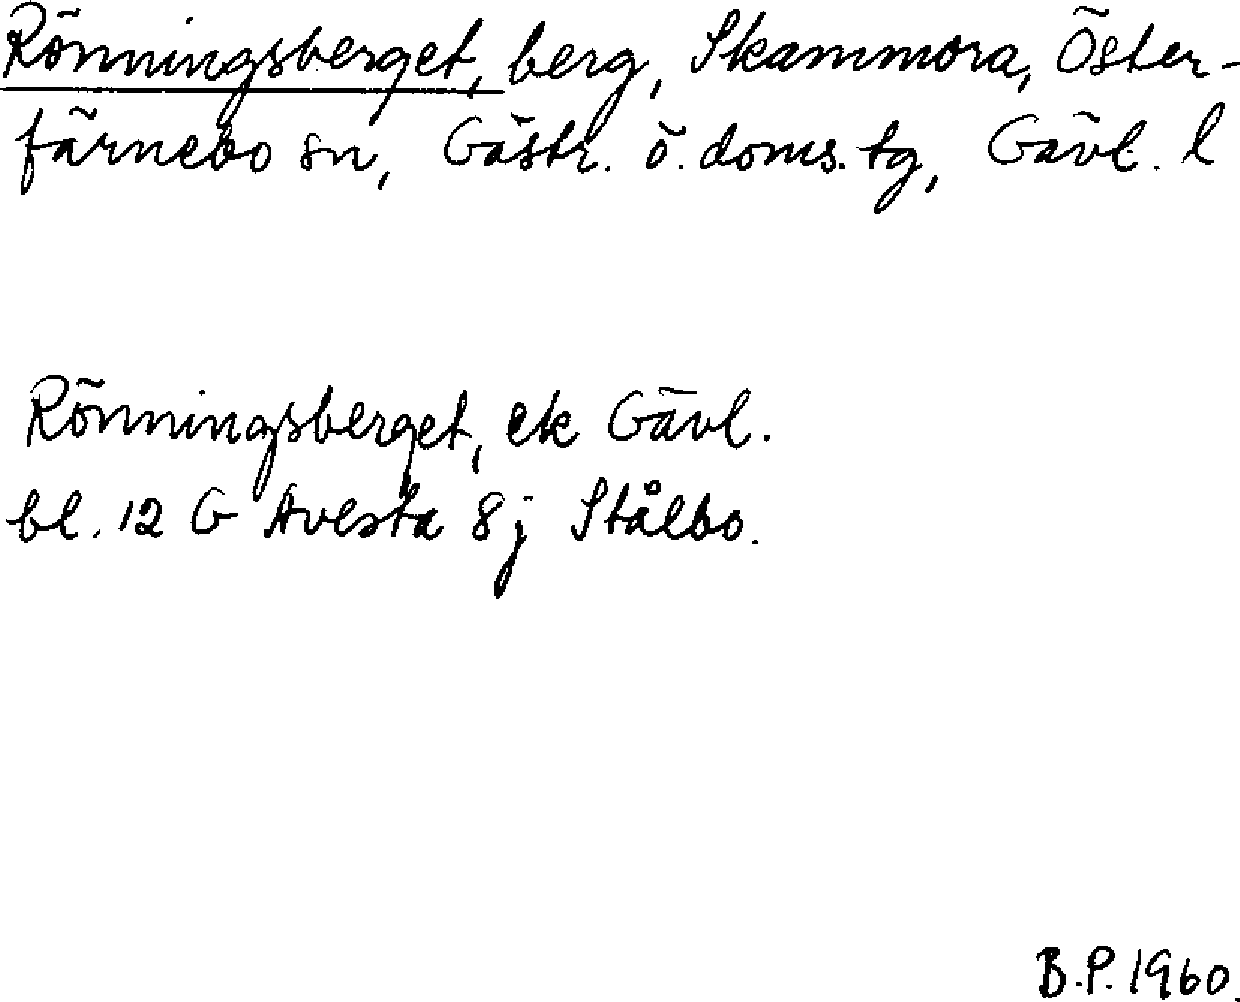 Rönningsberget, berg, Skammora, Öster-
färnebo sn, Gästr. ö. doms. tg, Gävl. l
Rönningsberget, ek Gävl.
bl. 12 G Avesta 8j Stålbo.
B.P. 1960.